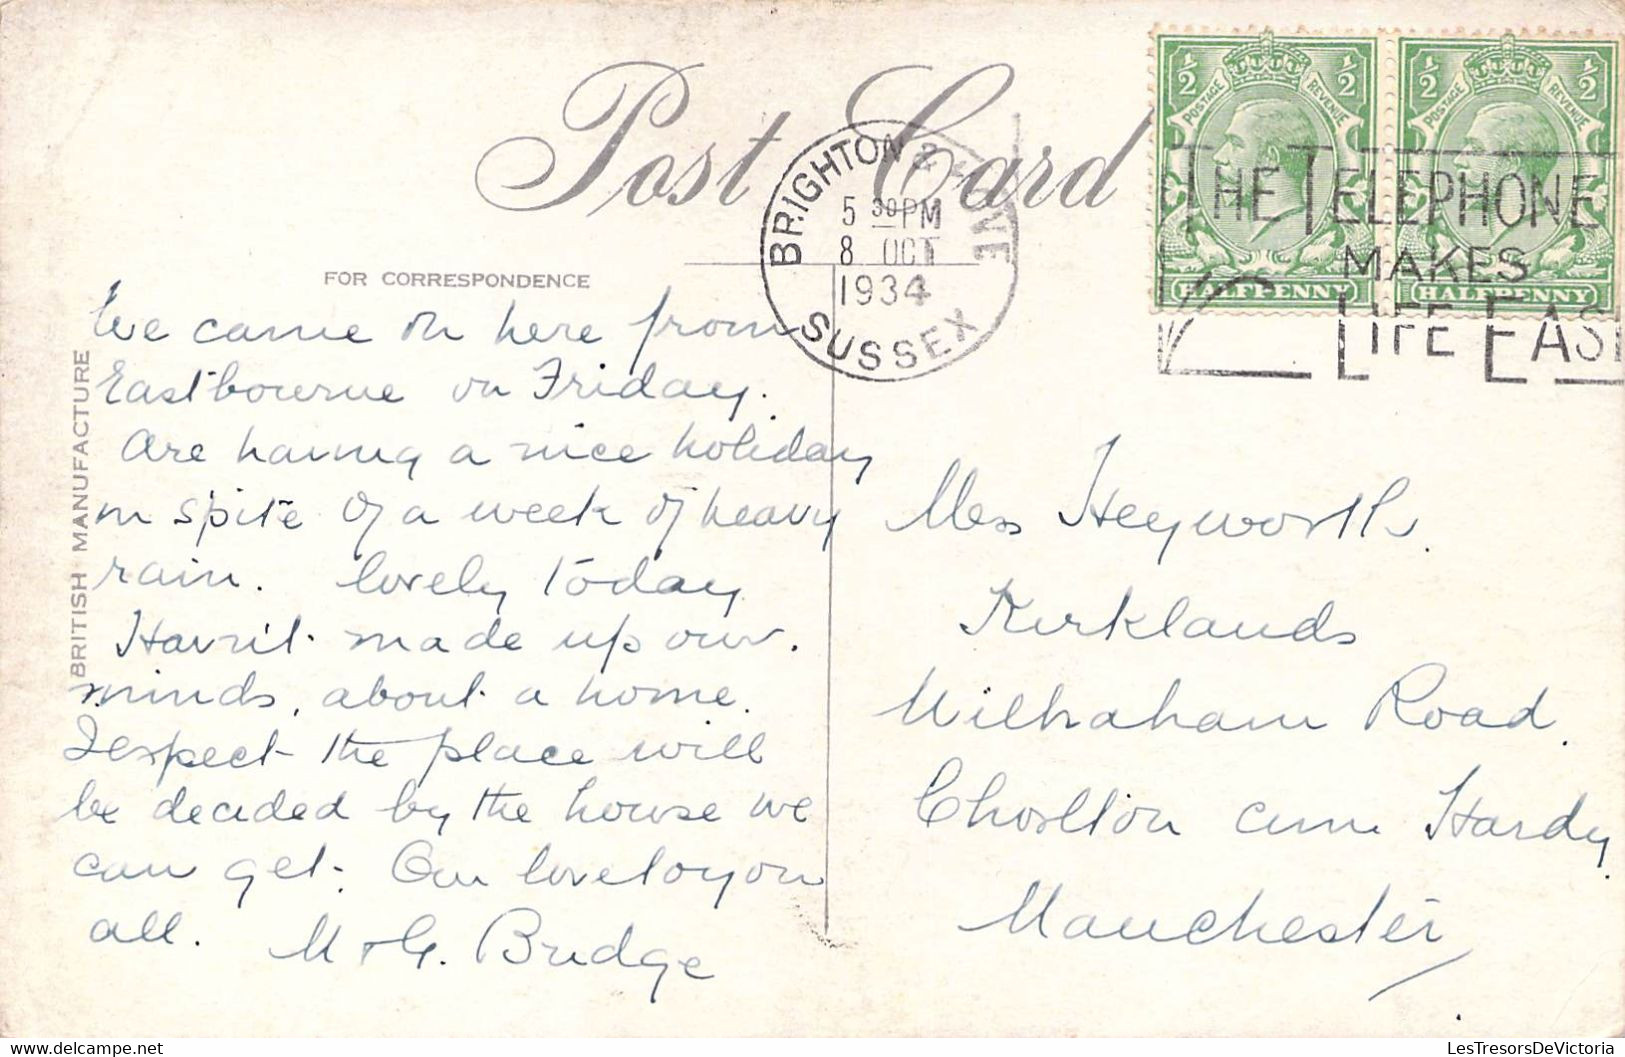 Post Card
BRIGHTON & HOVE
5 30 PM
8 OCT
1934
SUSSEX
½ ½
POSTAGE REVENUE
HALFPENNY
½ ½
POSTAGE REVENUE
HALFPENNY
THE TELEPHONE
MAKES
LIFE EASI
FOR CORRESPONDENCE
BRITISH MANUFACTURE
We came on here from
Eastbourne on Friday.
Are having a nice holiday
in spite of a week of heavy
rain. lovely today
Havn't made up our
minds, about a home.
I expect the place will
be decided by the house we
can get. Our love to you
all. M & G. Bridge
Heyworth.
Kirklands
Wilbraham Road.
Chorlton cum Hardy
Manchester
LesTresorsDeVictoria